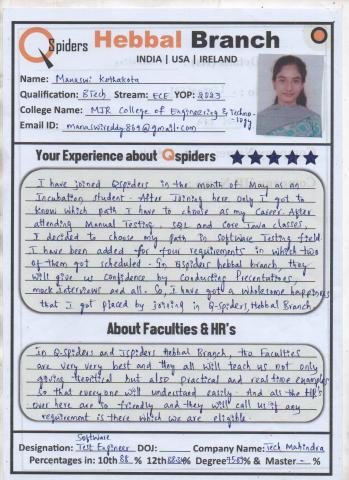 QSpiders Hebbal Branch
INDIA | USA | IRELAND
Name: Manaswi Kothakota
Qualification: BTech Stream: ECE YOP: 2023
College Name: MJR College of Engineering & Techno-
logy
Email ID: manaswireddy869@gmail.com
Your Experience about Qspiders
I have joined Qspiders in the month of May as an
Incubation student. After Joining here Only I got to
know which path I have to choose as my Career. After
attending Manual Testing, SQL and Core Java classes,
I decided to choose my path in Software Testing field.
I have been added for four requirements in which two
of them got scheduled. In Qspiders hebbal branch, they
will give us confidence by conducting Presentations,
mock interviews and all. So, I have got a wholesome happiness
that I got placed by joining in Q-spiders, Hebbal Branch
About Faculties & HR's
In Q-spiders and Jspiders Hebbal Branch, the Faculties
are very very best and they all will teach us not only
giving theoritical but also Practical and real time examples
so that everyone will understand easily. And all the HR's
over here are so friendly and they will call us if any
requirement is there which we are eligible.
Software
Designation: Test Engineer DOJ: Company Name: Tech Mahindra
Percentages in: 10th 88 % 12th % Degree % & Master - %